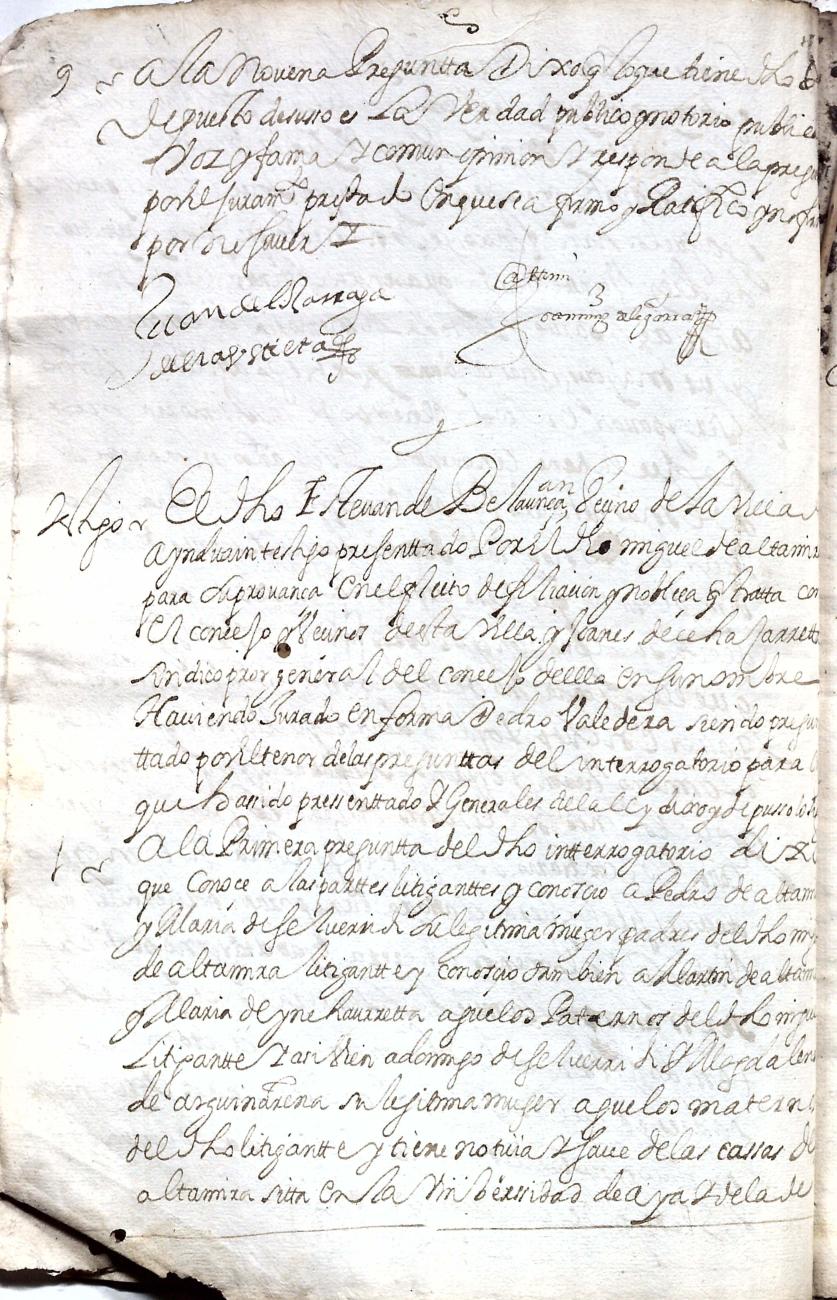 9 A la novena Pregunta Dixo q lo que tiene dho
depuesto de suso es La Verdad publico y notorio public
Voz y fama Y comun opinion Y responde a la pregu
por el Juramto prestado en que se afirmo y Ratifico y no firmo
por no saver
Juan de Larraga
Ante mi
Domingo de
El dho Estevan de Belaunçaran Vecino de la Villa
testigo presenttado Por el dho miguel de altamira
para su provança en el pleito de filiacion y nobleça q tratta con
El concejo y Vecinos desta Villa y Joanes de
Sindico pror general del concejo della en su nombre
Haviendo Jurado en forma de dro Valedera siendo pregun
ttado por el tenor de las preguntas del interrogatorio para
que ha sido pressenttado Y Generales de la lley dixo y depusso lo
1 A la Primera pregunta del dho intterrogatorio dixo
que Conoce a las parttes litiganttes y conocio a Pedro de altami
y Maria de su legitima muger padres del dho mig
de altamira litigantte y conocio tambien a Martin de altami
y Maria de ynchaurretta aguelos Paternos del dho migu
Litigantte Y asi bien a domingo de Y Magdalena
de arguinarena su legitima muger aguelos matern
del dho litigantte y tiene noticia Y save de las cassas de
altamira sitta en la Vniberssidad de aya Y de la de